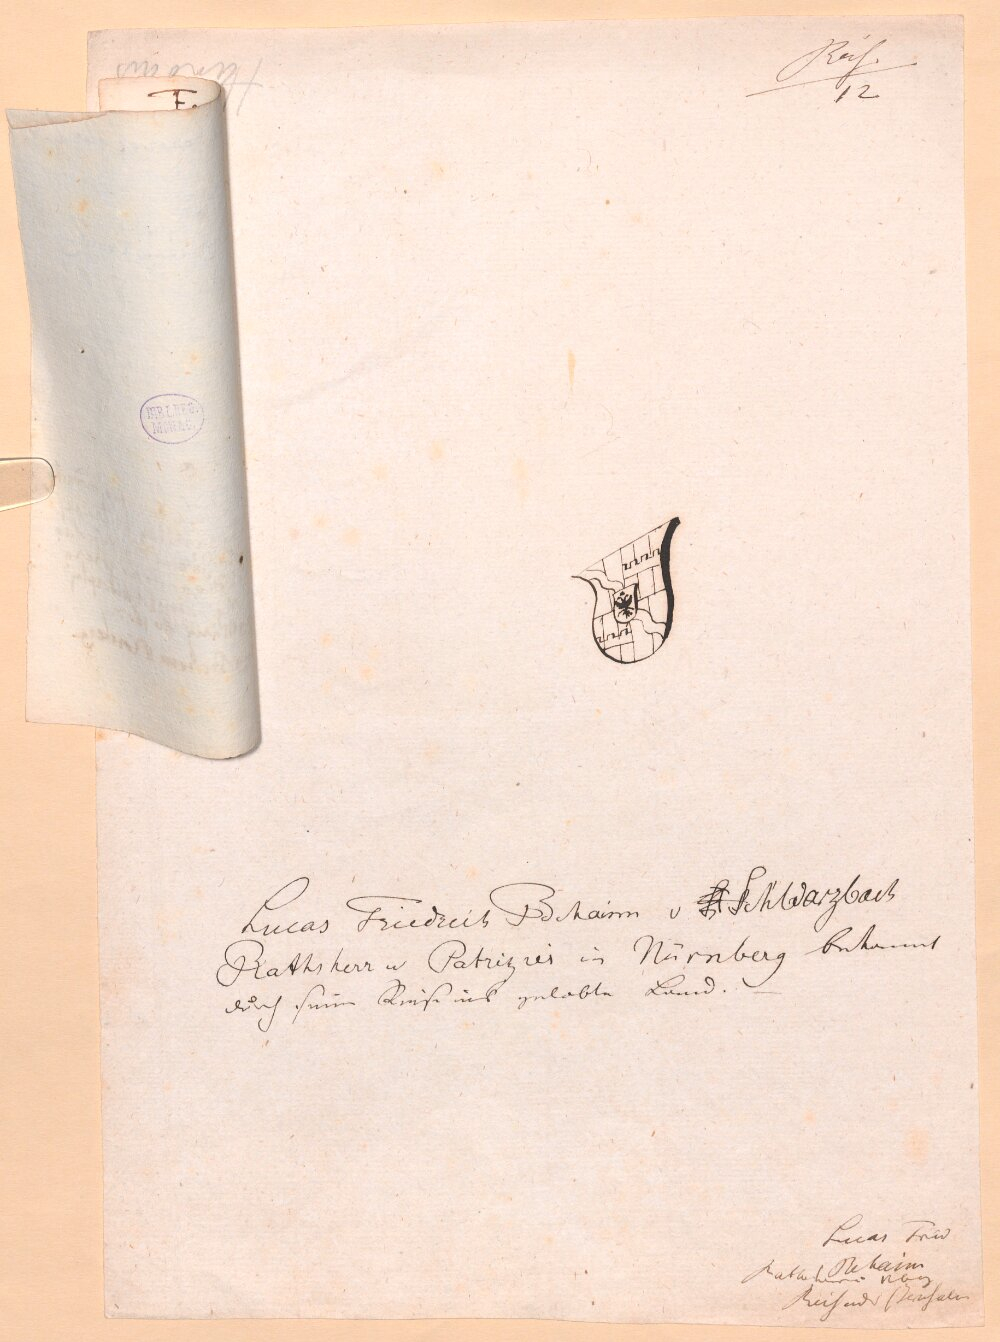 Reis.
12
F.
BIBL. REG.
MONAC.
Lucas Friedrich Behaim v Schwarzbach
Rathsherr u Patrizier in Nürnberg bekannt
durch seine Reise ins gelobte Land.
Lucas Fried
Behaim
Rathsherr Nbrg
Reise nach Jerusalem